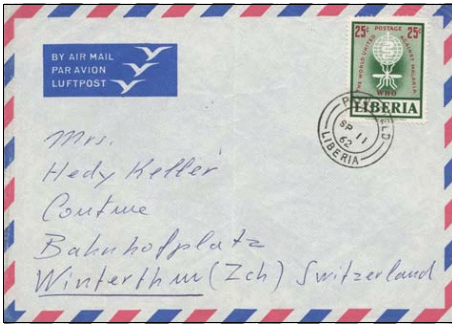 BY AIR MAIL
PAR AVION
LUFTPOST
25c POSTAGE 25c
THE WORLD UNITED AGAINST MALARIA
WHO
LIBERIA
SP 11
62
LIBERIA
Mrs.
Hedy Keller
Couture
Bahnhofplatz
Winterthur (Zch) Switzerland